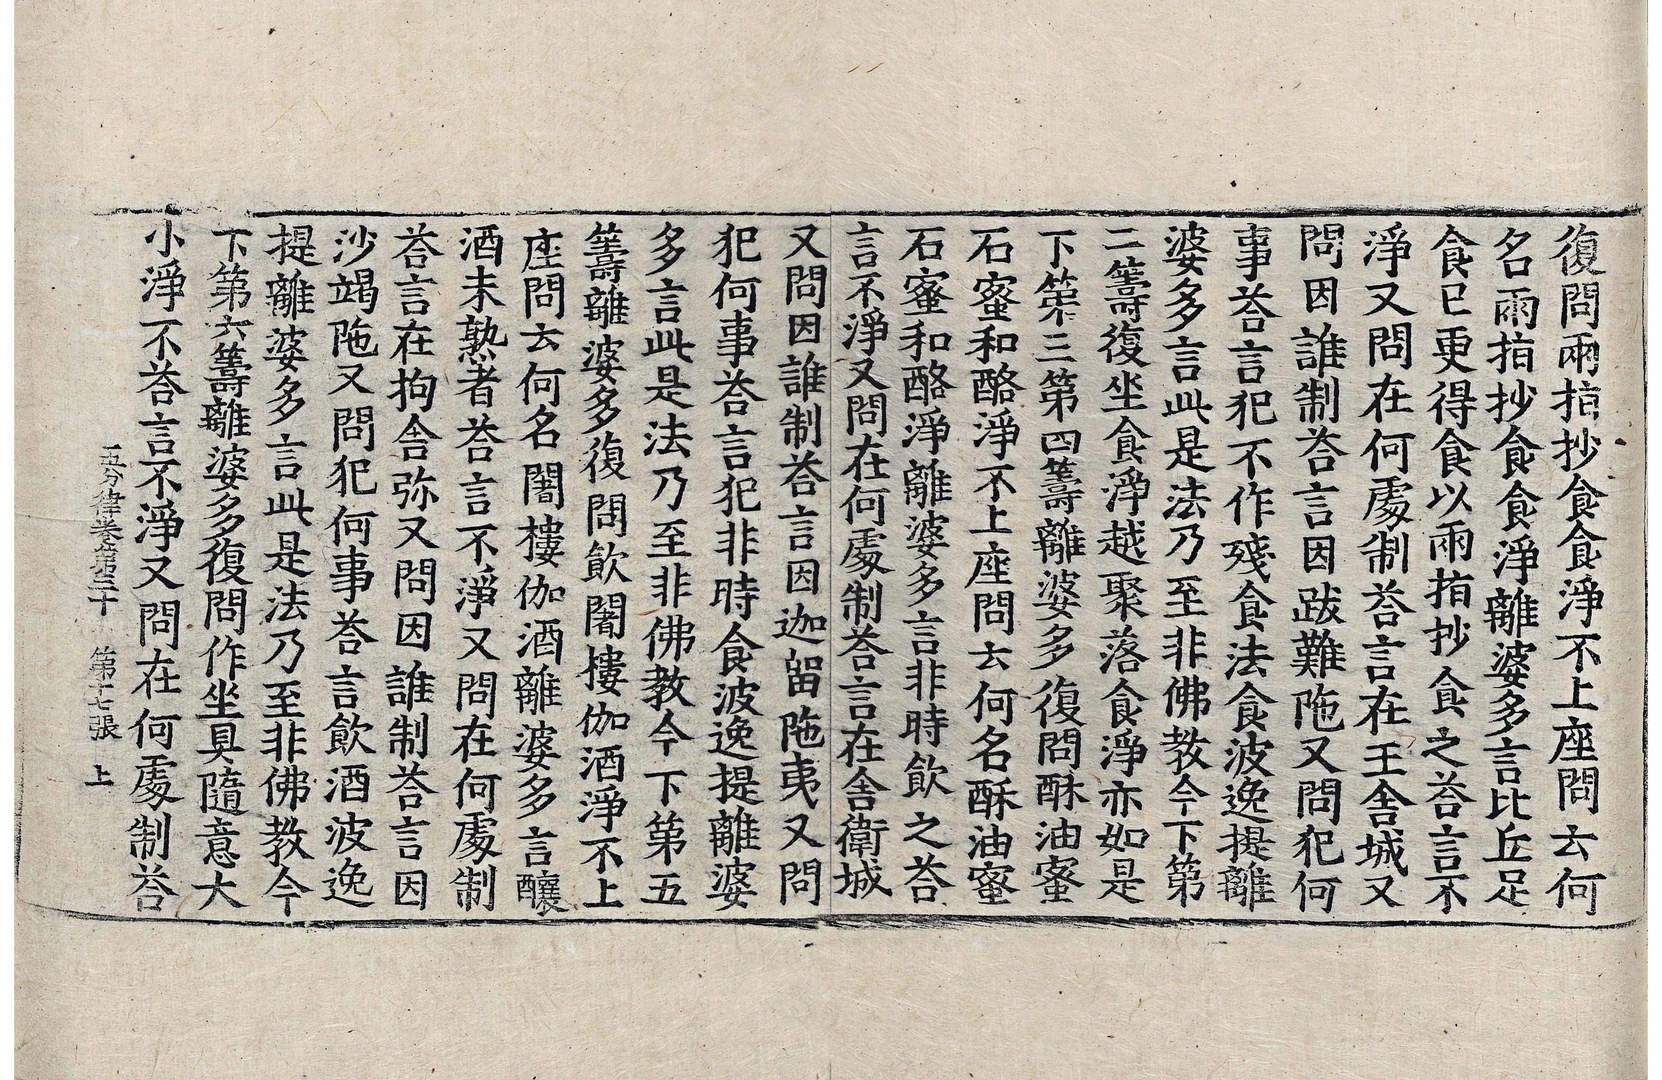 復問兩指抄食食淨不上座問云何
名兩指抄食食淨離婆多言比丘足
食已更得食以兩指抄食之荅言不
淨又問在何處制荅言在王舍城又
問因誰制荅言因跋難陁又問犯何
事荅言犯不作殘食法食波逸提離
婆多言此是法乃至非佛教今下第
二籌復坐食淨越聚落食淨亦如是
下第三第四籌離婆多復問酥油蜜
石蜜和酪淨不上座問云何名酥油蜜
石蜜和酪淨離婆多言非時飲之荅
言不淨又問在何處制荅言在舍衛城
又問因誰制荅言因迦留陁夷又問
犯何事荅言犯非時食波逸提離婆
多言此是法乃至非佛教今下第五
籌離婆多復問飲闍樓伽酒淨不上
座問云何名闍樓伽酒離婆多言釀
酒未熟者荅言不淨又問在何處制
荅言在拘舍弥又問因誰制荅言因
沙竭陁又問犯何事荅言飲酒波逸
提離婆多言此是法乃至非佛教今
下第六籌離婆多復問作坐具隨意大
小淨不荅言不淨又問在何處制荅
五分律卷第三十 第十七張 上